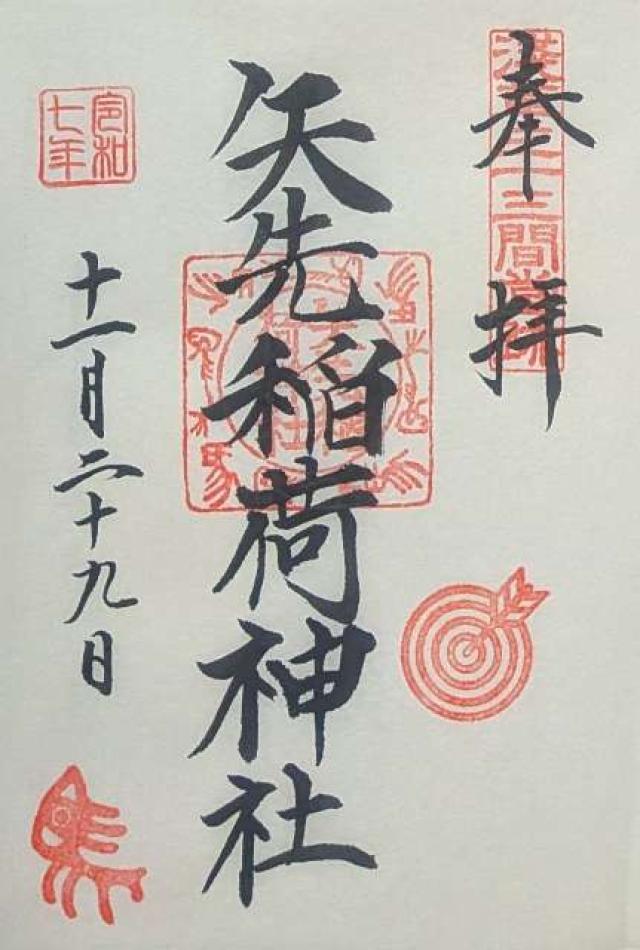 奉拝
浅草三十三間堂跡
矢先稲荷神社
令和七年
十一月二十九日
馬